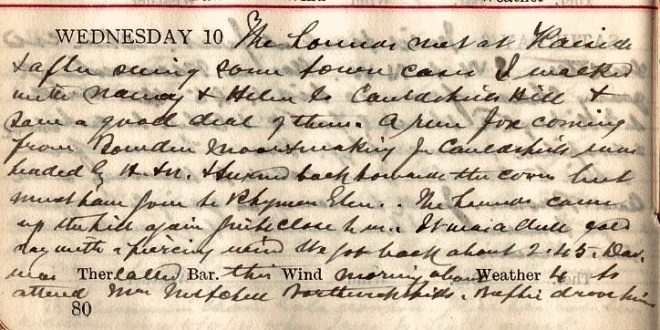 WEDNESDAY 10 The hounds met at Kaeside
& after seeing some town cases I walked
with Nancy & Helen to Cauldshiels Hill &
saw a good deal of them. A run fox coming
from Bowden Moor & making for Cauldshiels was
headed by H. & N. & turned back towards the cover but
must have gone to Rhymers Glen. The hounds came
up the hill again quite close to us. It was a dull cold
day with a piercing wind. We got back about 2.45. Dav.
was Ther. called Bar. this Wind morning about Weather 4 to
attend Mrs Mitchell drove him
80